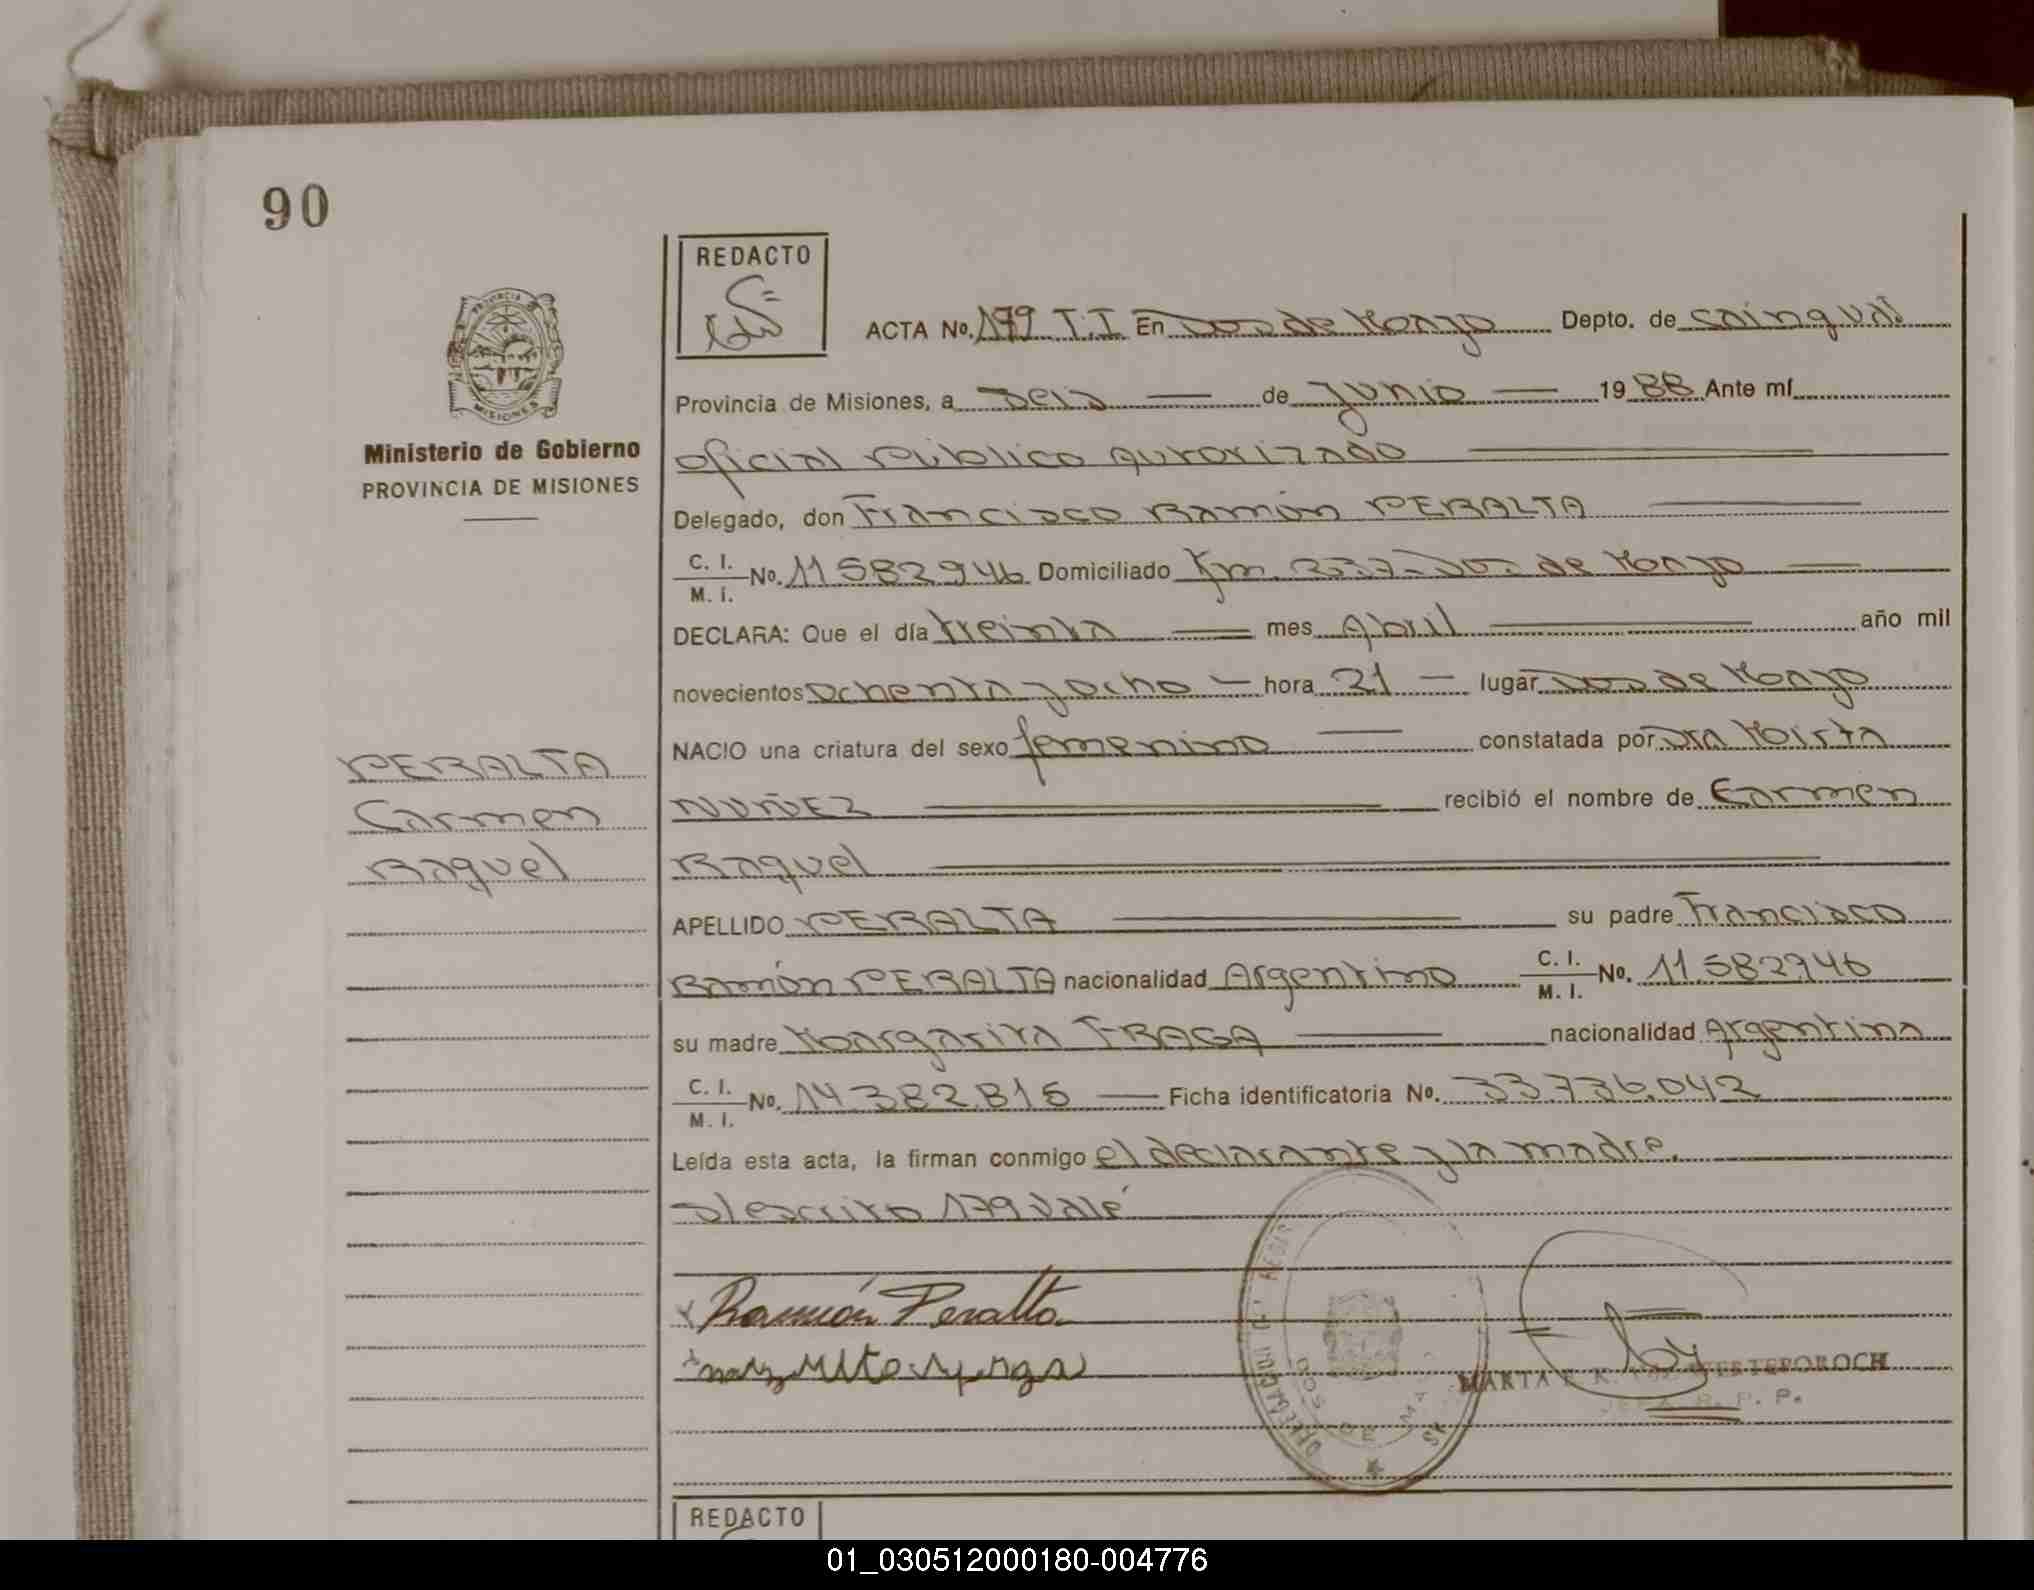 90
REDACTO
ACTA No. 179 T.I En Dos de Mayo Depto. de Cainguás
Provincia de Misiones, a Seis de Junio 1988 Ante mí
Ministerio de Gobierno
PROVINCIA DE MISIONES
oficial Público autorizado
Delegado, don Francisco Ramón PERALTA
C. I.
M. I. No. 11582946 Domiciliado Km. 237-Dos de Mayo
DECLARA: Que el día treinta mes Abril año mil
novecientos ochenta y ocho hora 21 lugar Dos de Mayo
NACIO una criatura del sexo femenino constatada por Dra Mirta
PERALTA
Carmen
Raquel
NUÑEZ recibió el nombre de Carmen
Raquel
APELLIDO PERALTA su padre Francisco
Ramón PERALTA nacionalidad Argentino C. I. M. I. No. 11.582946
su madre Margarita FRAGA nacionalidad Argentina
C. I.
M. I. No. 14.382.815 Ficha identificatoria No. 33.736.042
Leída esta acta, la firman conmigo el declarante y la madre.
S/escrito 179 Vale
x Ramón Peralta
MARTA E. K. DE
JEFA R. P. P.
DELEGACION REGIS
DOS DE MA
REDACTO
01_030512000180-004776